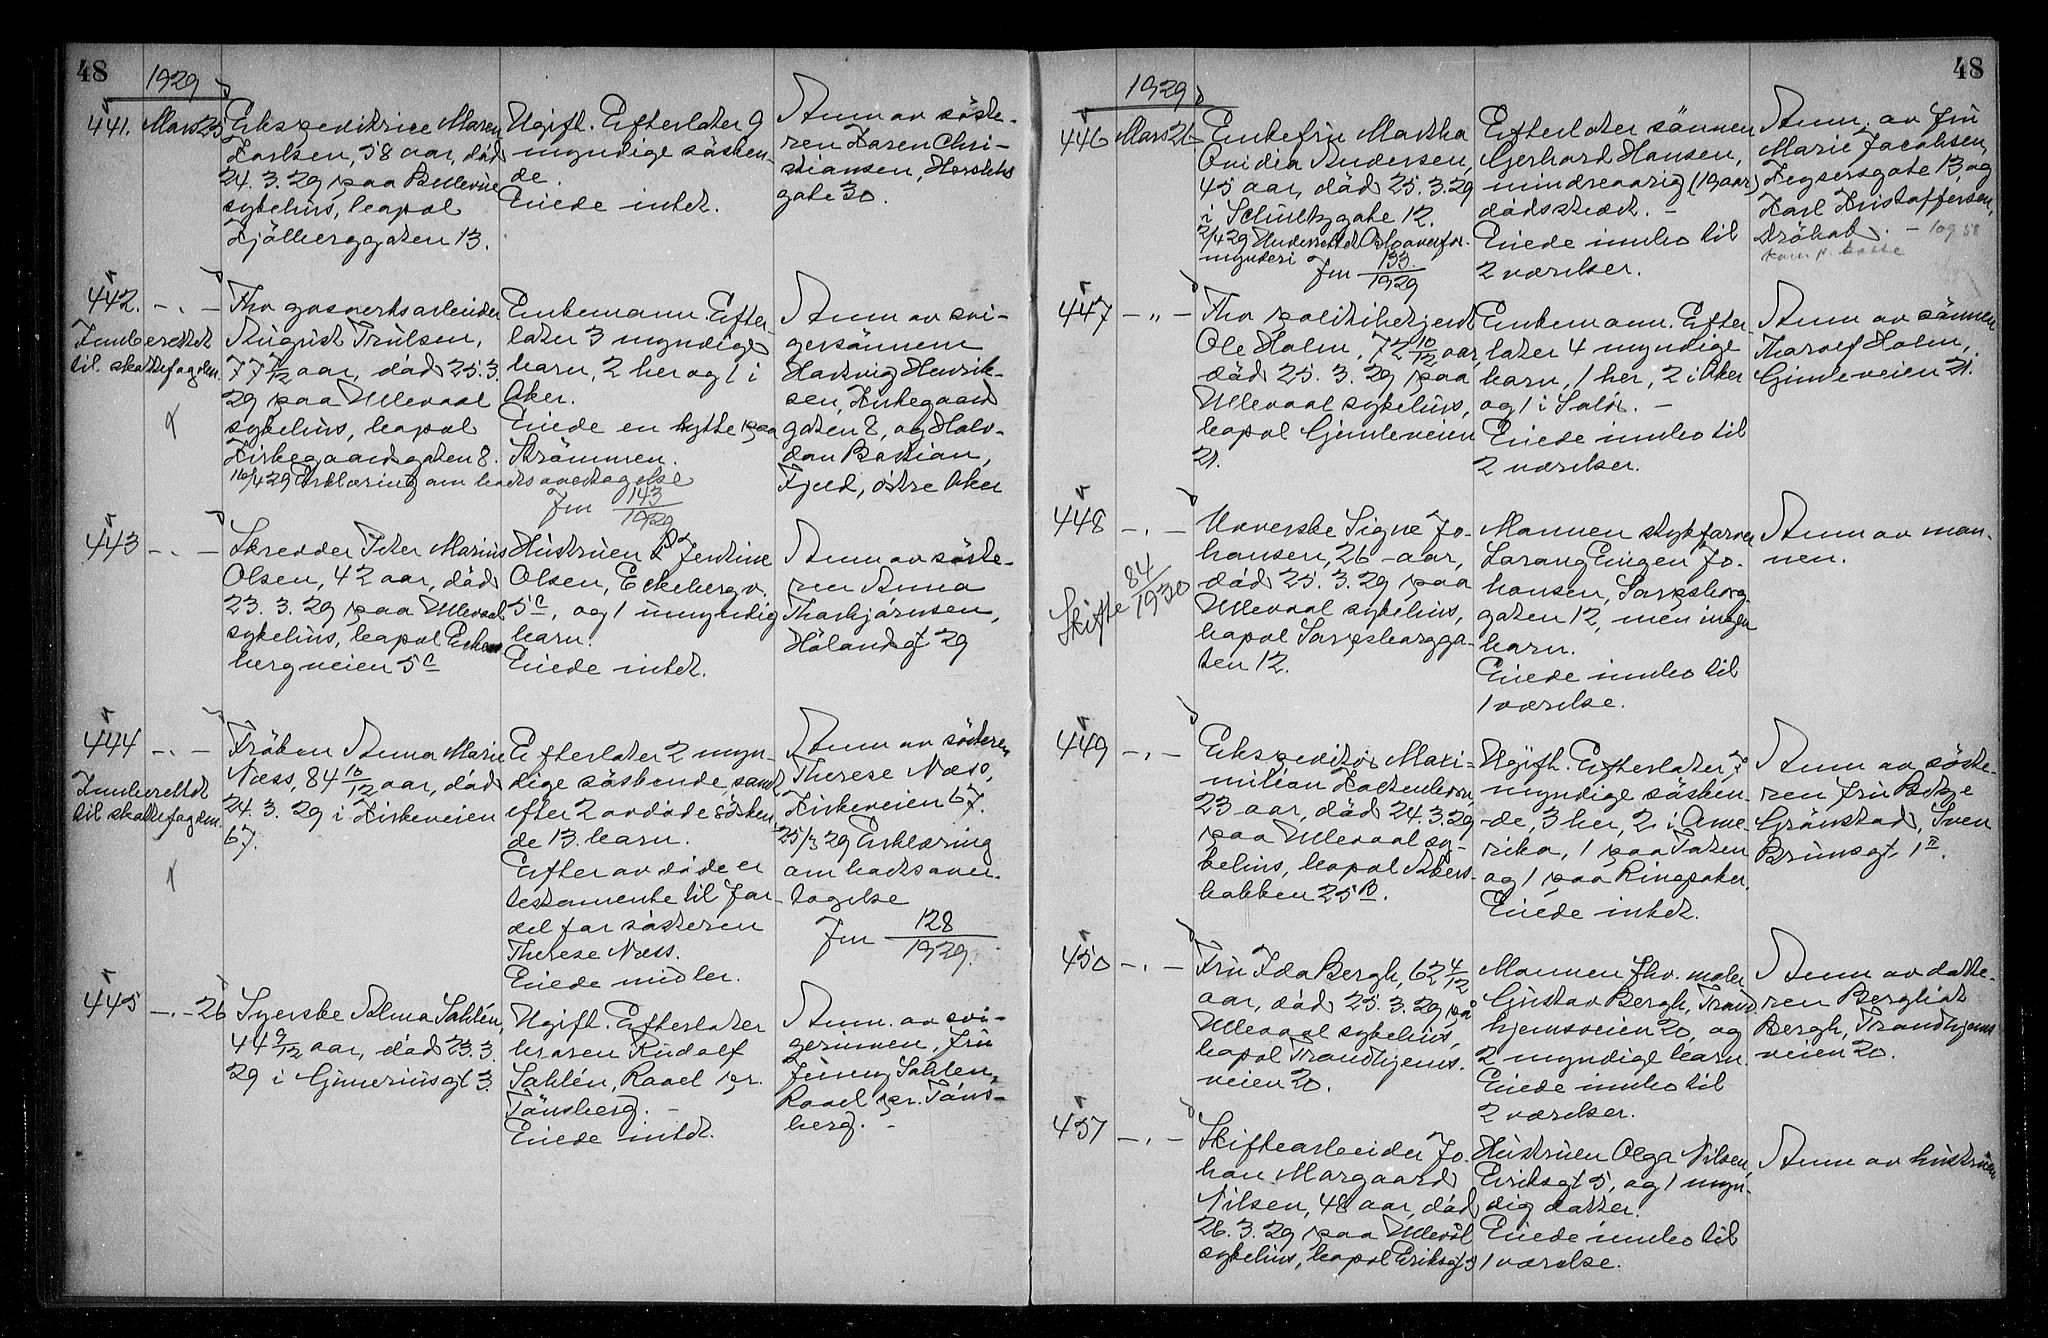 48
1929
441. Mars 25
Ekspeditrice Maren
Karlsen, 58 aar, död
24. 3. 29 paa Bellevue
sykehus, bopæl
Kjölberggaten 13.
Ugift. Efterlater 9
myndige sösken-
de.
Eiede intet.
Anm av söste-
ren Karen Chri-
stiansen, Herslebs
gate 30.
442. - . -
Innberettet
til skattefogden.
Fhv gasverksarbeider
August Trulsen,
77 7/12 aar, död 25. 3.
29 paa Ullevaal
sykehus, bopæl
Kirkegaardsgaten 8.
16/4 29 Erklæring om boets overtagelse
Jm 143/1929
Enkemann. Efter-
later 3 myndige
barn, 2 her og 1 i
Aker.
Eiede en hytte paa
Strömmen.
Anm av svi-
gersönnen
Hartvig Henrik-
sen, Kirkegaard
gaten 8, og Halv-
dan Bastian,
Fjeld, östre Aker
443 - . -
Skredder Peter Marius
Olsen, 42 aar, död
23. 3. 29 paa Ullevaal
sykehus, bopæl Ecke
bergveien 5c
Hustruen Jentine
Olsen, Eckebergv.
5c, og 1 umyndig
barn.
Eiede intet.
Anm av söste-
ren Anna
Thorbjörnsen,
Hölandsgt 29
444 - . -
Innberettet
til skattefogden.
Fröken Anna Marie
Næss, 84 10/12 aar, död
24. 3. 29 i Kirkeveien
67.
Efterlater 2 myn-
dige söskende, samt
efter 2 avdöde sösken-
de 13 barn.
Efter avdöde er
testamente til for-
del for sösteren
Therese Næss.
Eiede midler.
Anm av sösteren
Therese Næss,
Kirkeveien 67.
25/3 29 Erklæring
om boets over-
tagelse
Jm 128/1929.
445 - . - 26
Syerske Alma Sahlén,
44 9/12 aar, död 23. 3.
29 i Gjmeriusgt 3.
Ugift. Efterlater
broren Rudolf
Sahlén, Ravel pr.
Tönsberg. -
Eiede intet.
Anm. av svi-
gerinnen, fru
Jenny Sahlen,
Ravel pr. Töns-
berg. -
48
1929
446 Mars 26
Enkefru Martha
Ovidia Andersen,
45 aar, död 25. 3. 29
i Schultzgate 12.
2/4 29 Underrettet Oslo overfor-
mynderi
Jm 133/1929
Efterlater sönnen
Gerhard Hansen,
mindreaarig (19 aar)
dödsstedet. -
Eiede innbo til
2 værelser.
Anm. av fru
Marie Jacobsen,
Keysersgate 13, og
Karl Kristoffersen,
Dröbak. -
447 - „ -
Fhv politibetjent
Ole Holm, 72 10/12 aar,
död 25. 3. 29 paa
Ullevaal sykehus,
bopæl Gimleveien
21.
Enkemann. Efter-
later 4 myndige
barn, 1 her, 2 i Aker
og 1 i Solör. -
Eiede innbo til
2 værelser.
Anm av sönnen
Thorolf Holm,
Gimleveien 21.
448 - . -
Skifte 84/1930
Vaverske Signe Jo-
hansen, 26 - aar,
död 25. 3. 29 paa
Ullevaal sykehus,
bopæl Sarpsborgga-
ten 12.
Mannen stykfarver
Lorang Eingen Jo-
hansen, Sarpsborg-
gaten 12, men ingen
barn.
Eiede innbo til
1 værelse.
Anm av man-
nen.
449 - . -
Ekspeditör Maxi-
milian Koltenborn,
23 aar, död 24. 3. 29
paa Ullevaal sy-
kehus, bopæl Akers-
bakken 25 B.
Ugift. Efterlater 7
myndige sösken-
de, 3 her, 2 i Ame-
rika, 1 paa Toten
og 1 paa Ringsaker.
Eiede intet.
Anm av söste-
ren fru Borge
Grönstad, Sven
Brunsgt. 1 II.
450 - . -
Fru Ida Bergh, 62 4/12
aar, död 25. 3. 29 på
Ullevaal sykehus,
bopæl Trondhjems-
veien 20.
Mannen fhv. maler
Gustav Bergh, Trond
hjemsveien 20, og
2 myndige barn.
Eiede innbo til
2 værelser.
Anm av datte-
ren Bergliot
Bergh, Trondhjems
veien 20.
451 - . -
Skiftearbeider Jo-
han Morgaard
Nilsen, 48 aar, död
26. 3. 29 paa Ullevål
sykehus, bopæl Eriksgt 5
Hustruen Olga Nilsen,
Eriksgt 5, og 1 myn-
dig datter.
Eiede innbo til
1 værelse.
Anm av hustruen